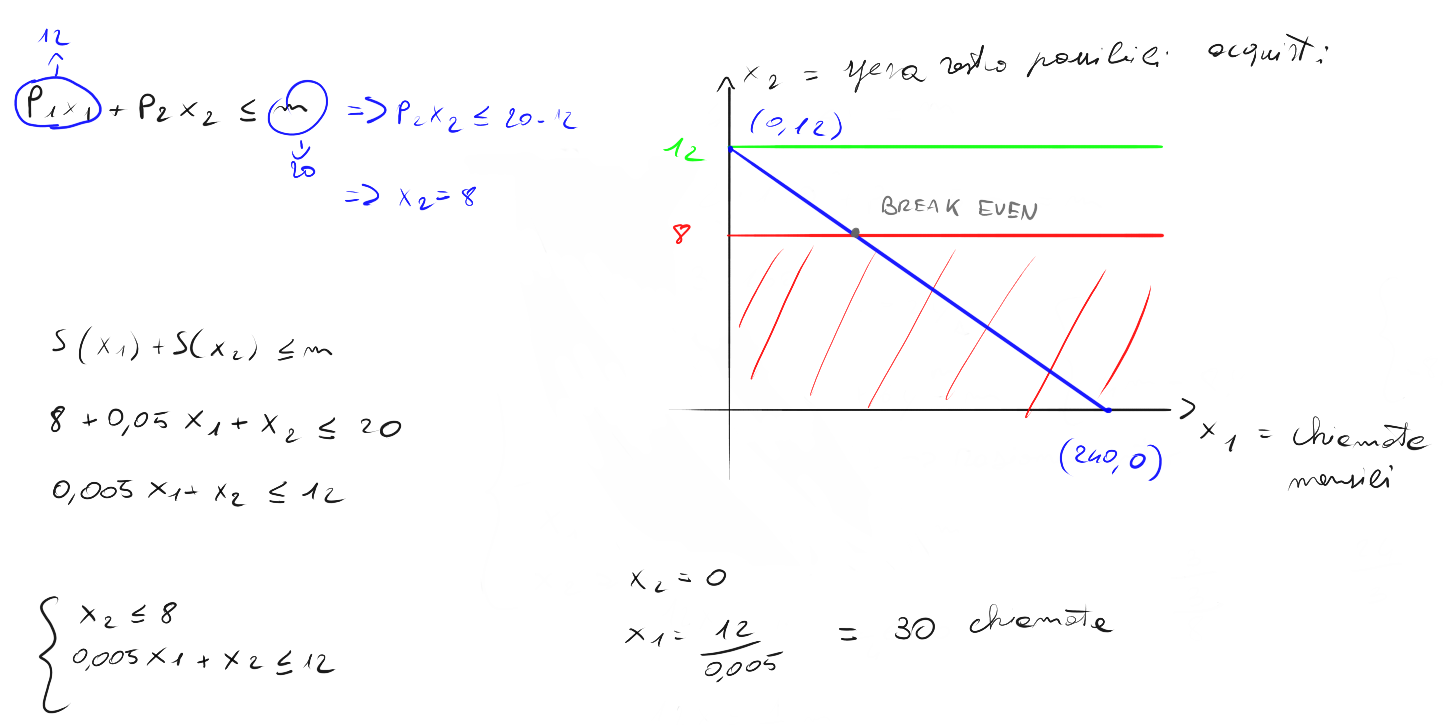 12
P₁x₁ + P₂x₂ ≤ m => P₂x₂ ≤ 20-12
20
=> x₂ = 8
S(x₁) + S(x₂) ≤ m
8 + 0,05 x₁ + x₂ ≤ 20
0,005 x₁ + x₂ ≤ 12
x₂ ≤ 8
0,005 x₁ + x₂ ≤ 12
x₂ = possibili acquisti
(0,12)
12
BREAK EVEN
8
(240,0)
x₁ = chiamate
mensili
x₂ = 0
x₁ = 12/0,005 = 30 chiamate